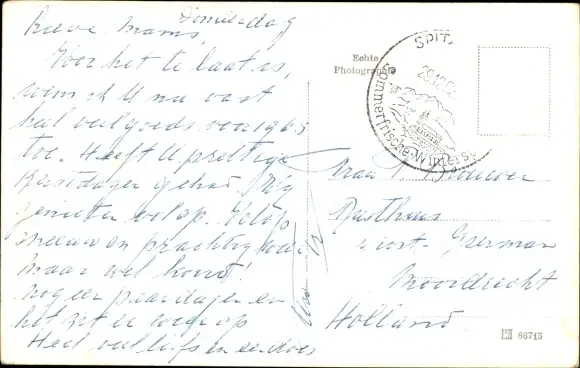 Donderdag
Lieve Mams,
Voor het te laat is,
wens ik U nu vast
heel veel goeds voor 1963
toe. Heeft U prettige
Kerstdagen gehad? Wij
genieten volop. Volop
sneeuw en prachtig weer
maar wel koud!
nog een paar dagen en
het zit er weer op
Heel veel liefs en
Echte
Photographie
Spit
29.12.62
Sommerfrische-Wintersp
Brouwer
Rusthuis
Moordrecht
Holland
86715